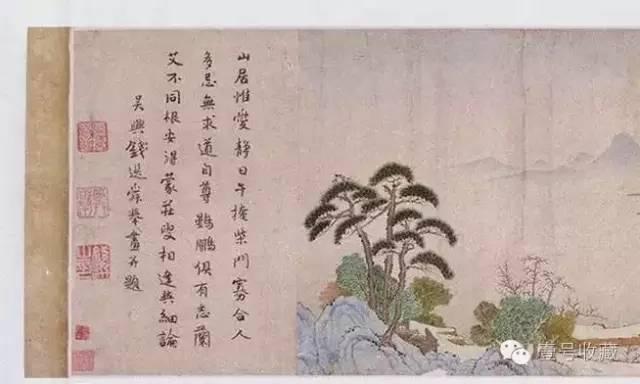 山居惟愛静日午掩柴門寡合人
多忌無求道自尊鷃鵬俱有志蘭
艾不同根安得蒙莊叟相逢與細論
吳興錢選舜舉畫并題
壹号收藏